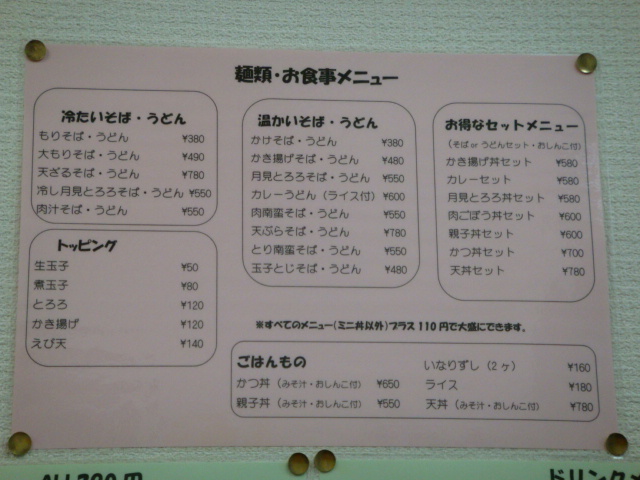 麺類・お食事メニュー
冷たいそば・うどん
もりそば・うどん ¥380
大もりそば・うどん ¥490
天ざるそば・うどん ¥780
冷し月見とろろそば・うどん ¥550
肉汁そば・うどん ¥550
トッピング
生玉子 ¥50
煮玉子 ¥80
とろろ ¥120
かき揚げ ¥120
えび天 ¥140
温かいそば・うどん
かけそば・うどん ¥380
かき揚げそば・うどん ¥480
月見とろろそば・うどん ¥550
カレーうどん（ライス付） ¥600
肉南蛮そば・うどん ¥550
天ぷらそば・うどん ¥780
とり南蛮そば・うどん ¥550
玉子とじそば・うどん ¥480
お得なセットメニュー
（そば or うどんセット・おしんこ付）
かき揚げ丼セット ¥580
カレーセット ¥580
月見とろろ丼セット ¥580
肉ごぼう丼セット ¥600
親子丼セット ¥600
かつ丼セット ¥700
天丼セット ¥780
※すべてのメニュー（ミニ丼以外）プラス110円で大盛にできます。
ごはんもの
かつ丼（みそ汁・おしんこ付） ¥650
親子丼（みそ汁・おしんこ付） ¥550
いなりずし（2ヶ） ¥160
ライス ¥180
天丼（みそ汁・おしんこ付） ¥780